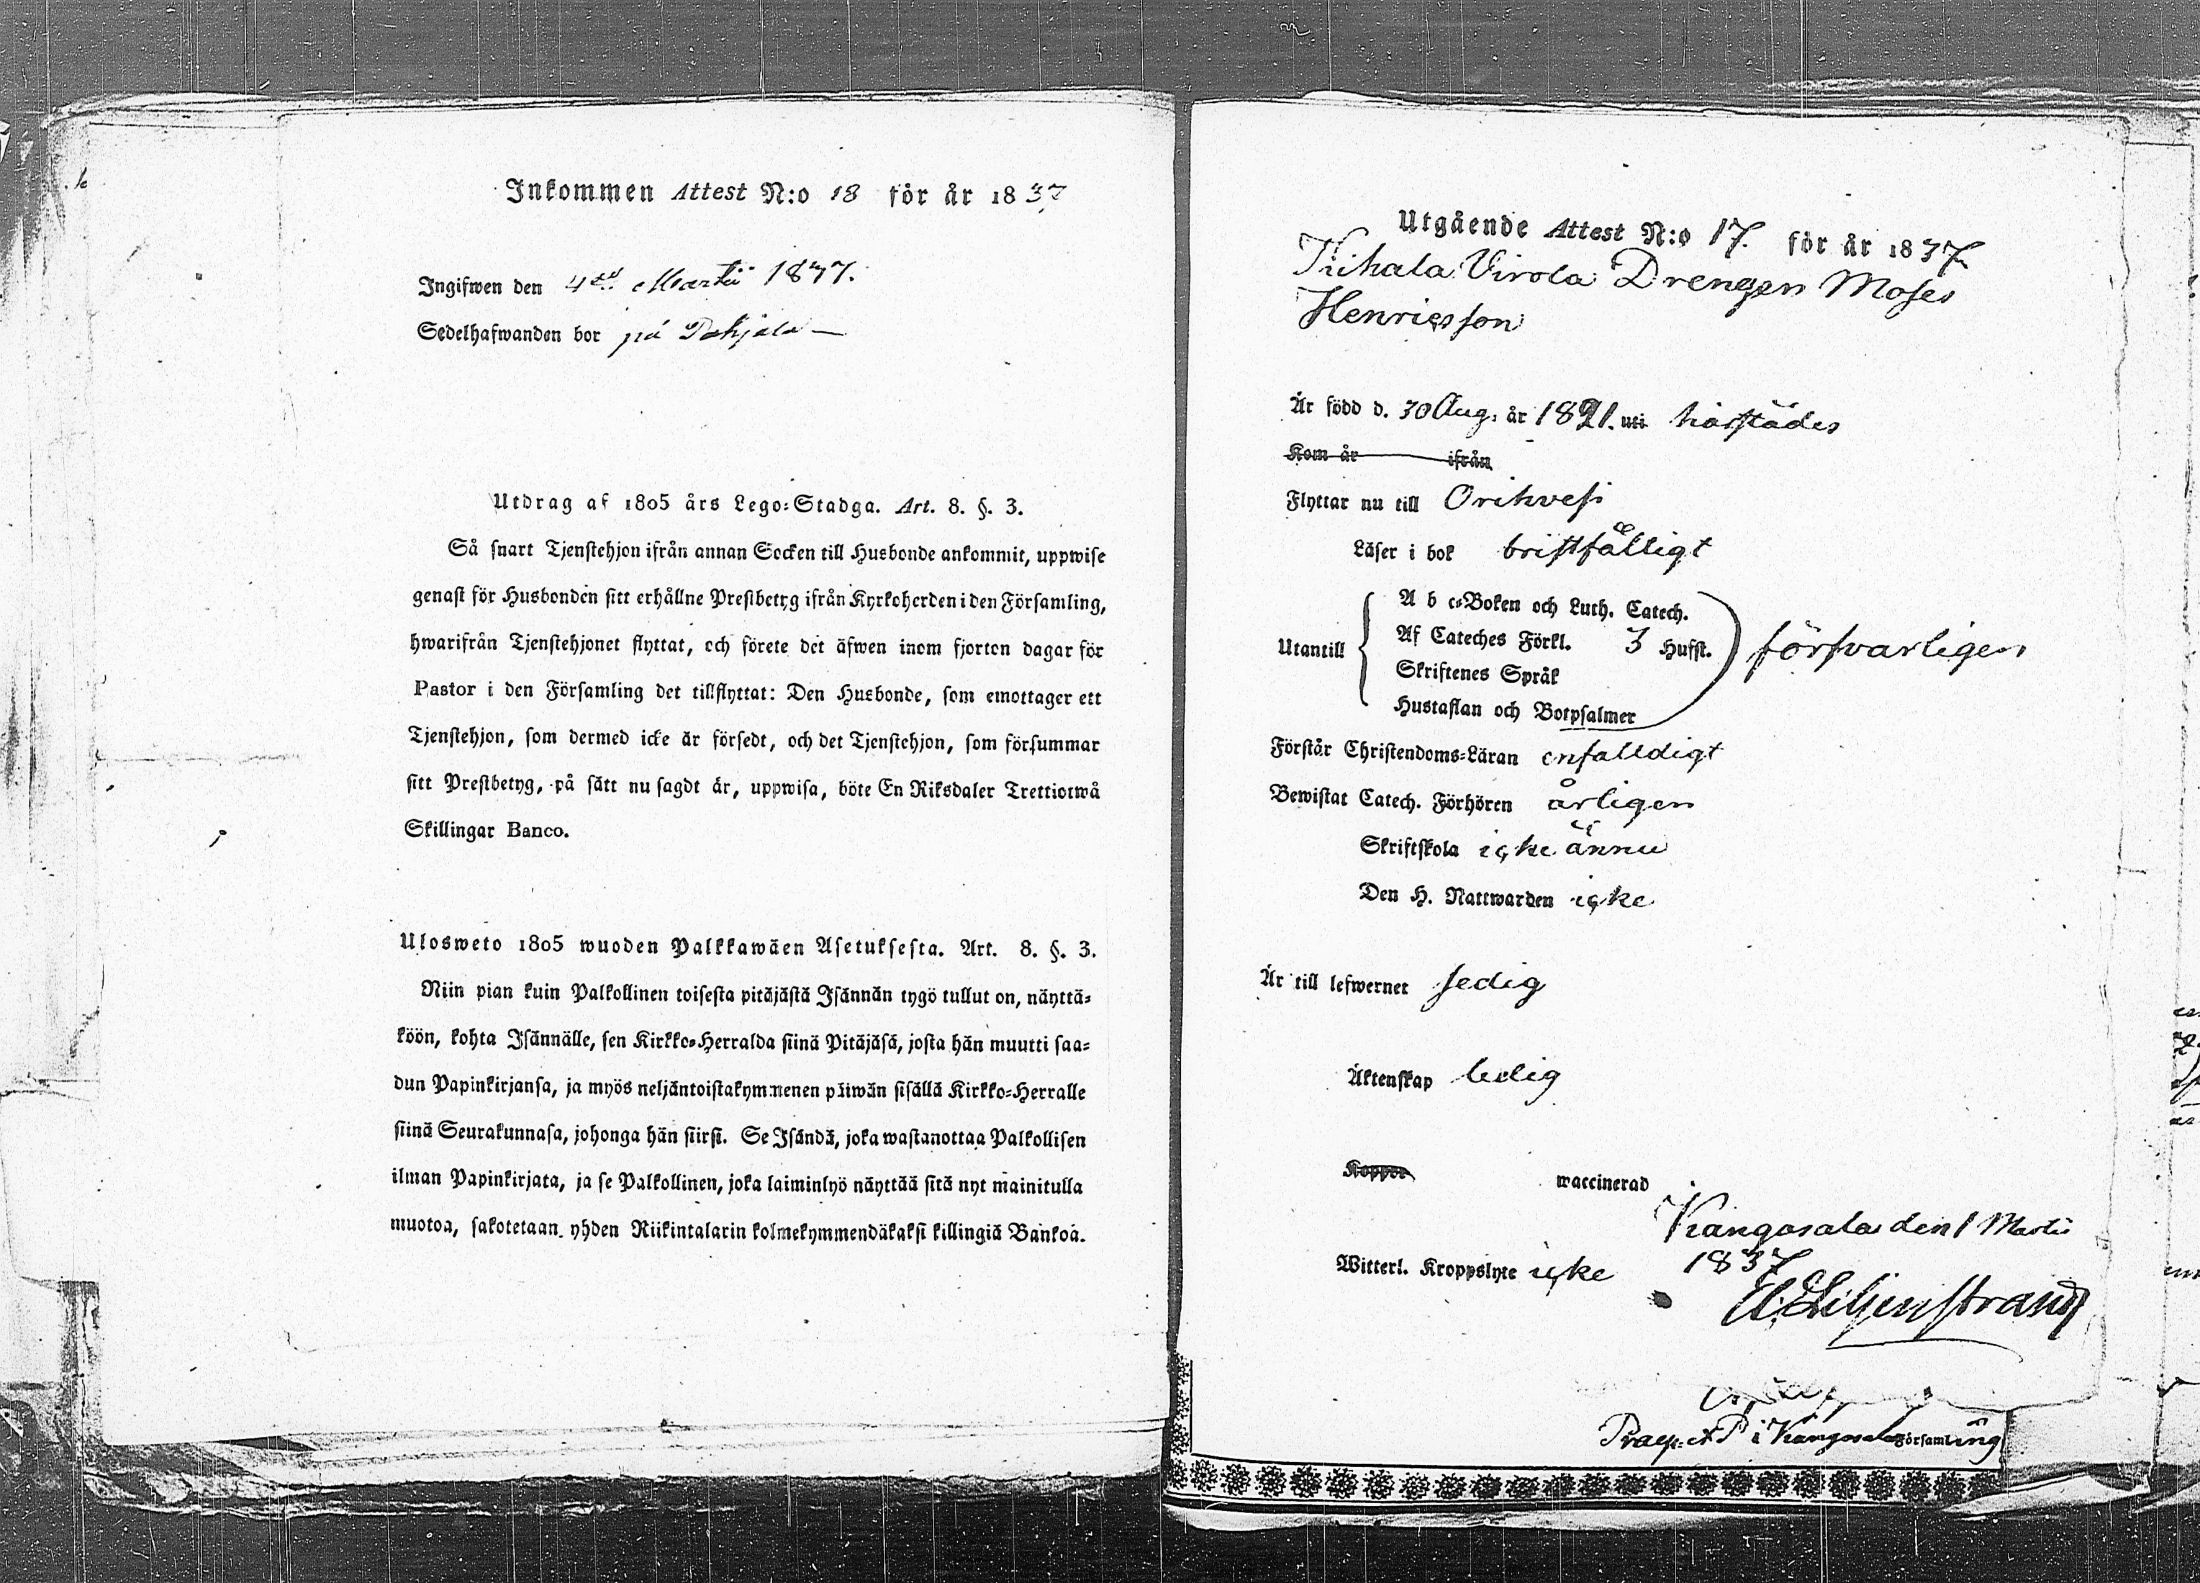 Inkommen Attest N:o 18 för år 1837
Ingifwen den 4de Martii 1837.
Sedelhafwanden bor på Pohjala —
Utdrag af 1805 års Lego-Stadga. Art. 8. §. 3.
Så snart Tjenstehjon ifrån annan Socken till Husbonde ankommit, uppwise
genast för Husbonden sitt erhållne Prestbetyg ifrån Kyrkoherden i den Församling,
hwarifrån Tjenstehjonet flyttat, och förete det äfwen inom fjorton dagar för
Pastor i den Församling det tillflyttat: Den Husbonde, som emottager ett
Tjenstehjon, som dermed icke är försedt, och det Tjenstehjon, som försummar
sitt Prestbetyg, på sätt nu sagdt är, uppwisa, böte En Riksdaler Trettiotwå
Skillingar Banco.
Ulosweto 1805 wuoden Palkkawäen Asetuksesta. Art. 8. §. 3.
Niin pian kuin Palkollinen toisesta pitäjästä Isännän tygö tullut on, näyttä-
köön, kohta Isännälle, sen Kirkko-Herralda siinä Pitäjäsä, josta hän muutti saa-
dun Papinkirjansa, ja myös neljäntoistakymmenen päiwän sisällä Kirkko-Herralle
siinä Seurakunnasa, johonga hän siirsi. Se Isändä, joka wastanottaa Palkollisen
ilman Papinkirjata, ja se Palkollinen, joka laiminlyö näyttää sitä nyt mainitulla
muotoa, sakotetaan yhden Riikintalarin kolmekymmendäkaksi killingiä Bankoa.
Utgående Attest N:o 17. för år 1837.
Kuhala Virola Drengen Moses
Henricsson
Är född d. 30 Aug: år 1821. uti härstädes
Kom år ifrån
Flyttar nu till Orihvesi
Läser i bok bristfälligt
Utantill
A b c-Boken och Luth. Catech.
Af Cateches Förkl. 3 Hufst.
Skriftenes Språk
Hustaflan och Botpsalmer
försvarligen
Förstår Christendoms-Läran enfalldigt
Bewistat Catech. Förhören årligen
Skriftskola icke ännu
Den H. Nattwarden icke
Är till lefwernet sedig
Äktenskap ledig
Koppor waccinerad
Kangasala den 1 Martii
1837
Witterl. Kroppslyte icke
Liljenstrand
Praep. et P i Kangasala Församling